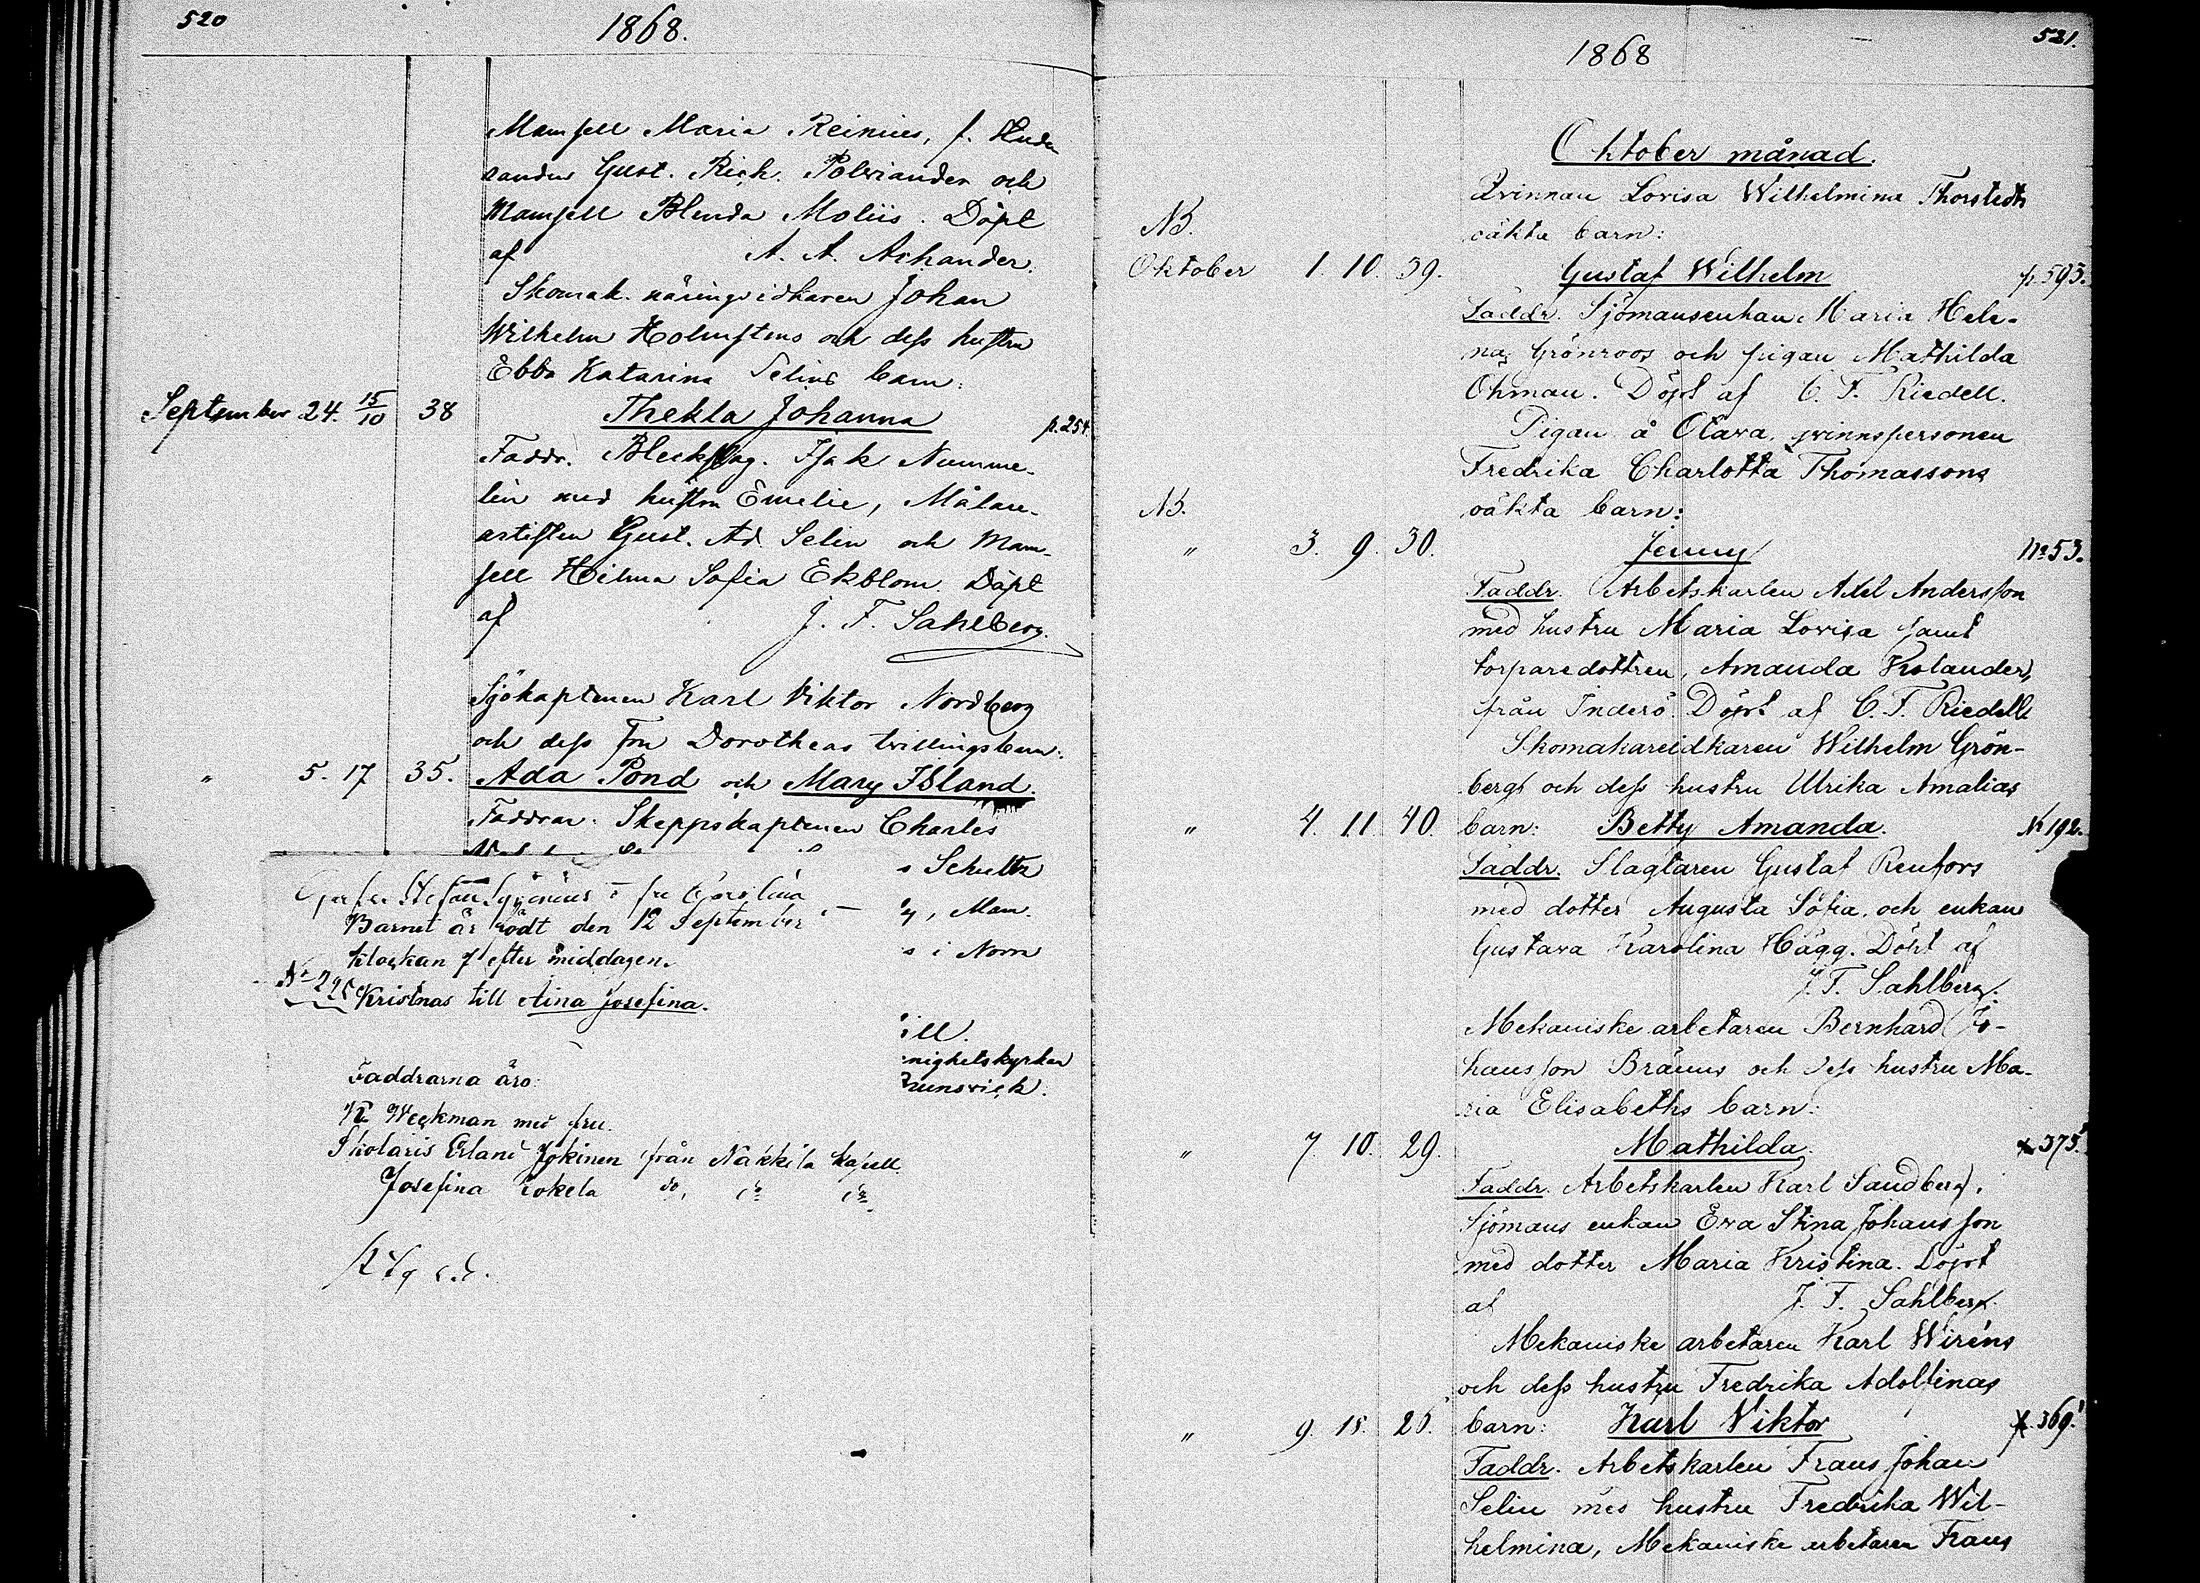 520
1868.
Mamsell Maria Reinius, f. Stude
randen Gust. Rich. Polviander och
Mamsell Blenda Moliis. Döpt
af A. A. Achander.
Skomak. näringsidkaren Johan
Wilhelm Holmstens och dess hustru
Ebba Katarina Selins barn:
September 24. 15/10 38 Thekla Johanna p. 254
Faddr. Bleckslag. Isak Numme-
lin med hustru Emelie, Målare-
artisten Gust. Ad. Selin och Mam-
sell Hilma Sofia Ekblom. Döpt
af J. F. Sahlberg.
Sjökaptenen Karl Viktor Nordberg
och dess fru Dorotheas tvillingsbarn:
" 5. 17 35. Ada Pond och Mary Island.
Faddrar. Skeppskaptenen Charles
s Schultz
fru Carolina
y, Man.
Barnet är födt den 12 September
s i Norra
klockan 7 efter middagen.
No 295 Kristnas till Aina Josefina.
ill.
nighetskyrkan
Faddrarna äro:
runswick.
K Weckman med fru.
Skolaris Erland Jokinen från Nakkila kapell
Josefina Tokela do, do do
1868
521.
Oktober månad.
Qvinnan Lovisa Wilhelmina Thorstedts
NB.
oäkta barn:
Oktober 1. 10. 39. Gustaf Wilhelm p. 593.
Faddr. Sjömansenkan Maria Hele-
na Grönroos och pigan Mathilda
Öhman. Döpt af C. F. Riedell.
Pigan å Otava, qvinnspersonen
Fredrika Charlotta Thomassons
NB. oäkta barn:
" 3. 9. 30. Jenny No 53.
Faddr. Arbetskarlen Axel Andersson
med hustru Maria Lovisa samt
torparedottren, Amanda Kolander,
från Inderö. Döpt af C. F. Riedell
Skomakareidkaren Wilhelm Grön-
bergs och dess hustru Ulrika Amalias
" 4. 11. 40. barn: Betty Amanda. No 192.
Faddr. Slagtaren Gustaf Renfors
med dotter Augusta Sofia, och enkan
Gustava Karolina Hägg. Döpt af
J. F. Sahlberg.
Mekaniske arbetaren Bernhard Jo-
hansson Bränns och dess hustru Ma-
ria Elisabeths barn:
" 7 10. 29. Mathilda. 375.
Faddr. Arbetskarlen Karl Sandberg,
Sjömans enkan Eva Stina Johansson
med dotter Maria Kristina. Döpt
af J. F. Sahlberg.
Mekaniske arbetaren Karl Wiréns
och dess hustru Fredrika Adolfinas
" 9. 15. 26. barn: Karl Viktor p. 369.
Faddr. Arbetskarlen Frans Johan
Selin med hustru Fredrika Wil-
helmina, Mekaniske arbetaren Frans